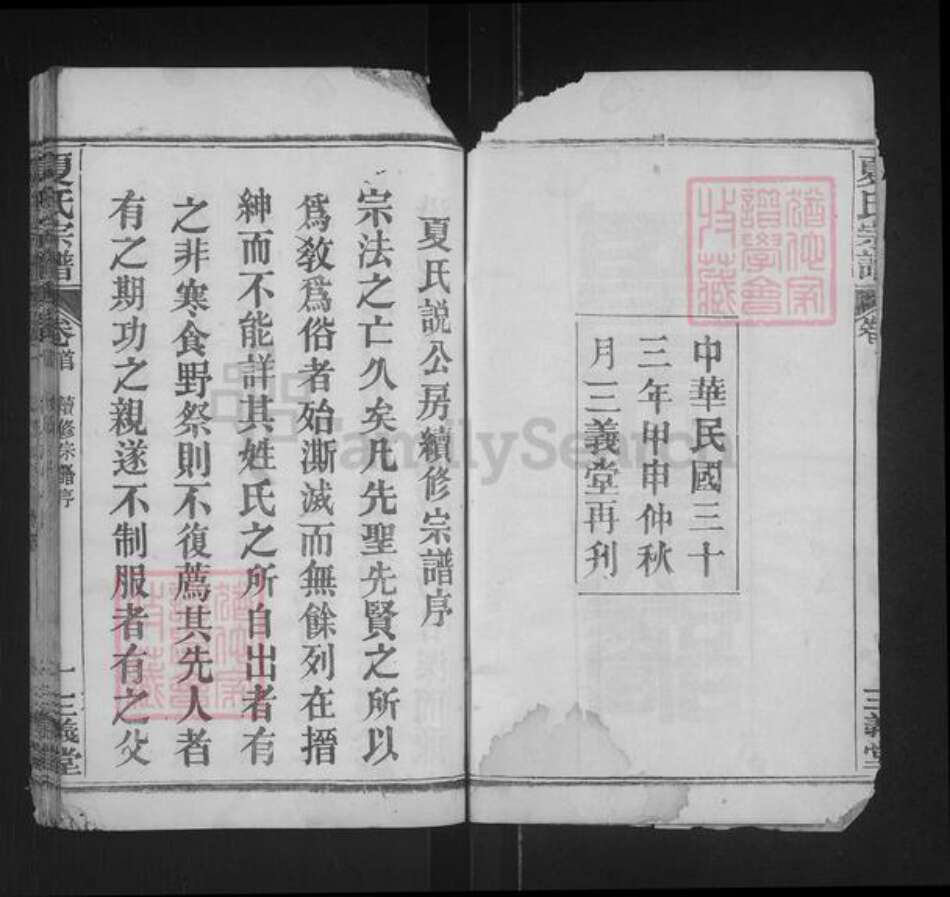 夏氏宗譜
卷
三義堂
中華民國三十
三年甲申仲秋
月三義堂再刋
夏氏説公房續修宗譜序
宗法之亡久矣凡先聖先賢之所以
爲教爲俗者殆澌滅而無餘列在搢
紳而不能詳其姓氏之所自出者有
之非寒食野祭則不復薦其先人者
有之期功之親遂不制服者有之父
夏氏宗譜
卷首
續修宗譜序
一
三義堂
FamilySearch